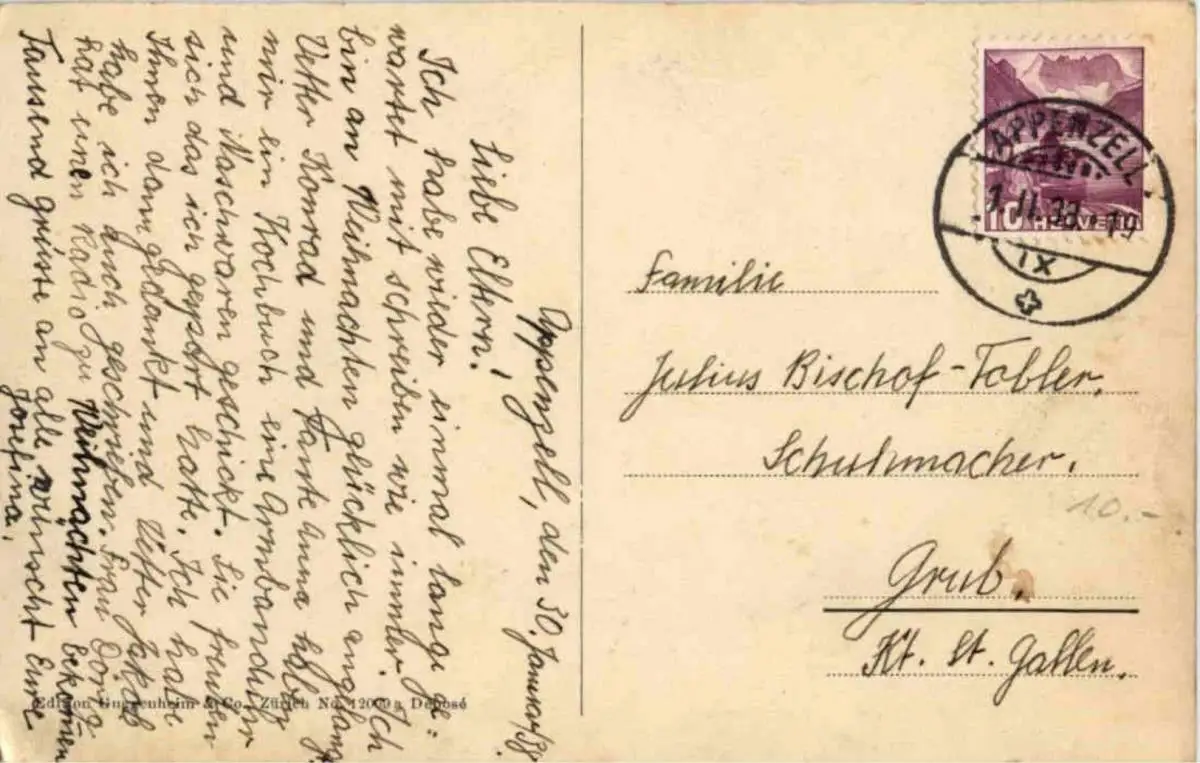 Appenzell, den 30. Januar/38.
Liebe Eltern!
Ich habe wider einmal lange ge=
wartet mit schreiben wie immer. Ich
bin an Weihnachten glücklich angelang
Vetter Konrad und Tante Anna haben
mir ein Kochbuch eine Armbanduhr
und Naschwaren geschickt. Sie freuten
sich das ich gespart hatte. Ich habe
Ihnen dann gedankt und Vetter Jakob
habe ich auch geschrieben. Frau Dörig
hat einen Radio zu Weihnachten bekommen
Tausend grüsse an alle wünscht Eure
Josefina.
Edition Guggenheim & Co., Zürich No. 12009a Déposé
APPENZELL
1.II.38.-19
IX
10 HELVETIA
Familie
Julius Bischof-Tobler.
Schuhmacher.
10.-
Grub.
Kt. St. Gallen.